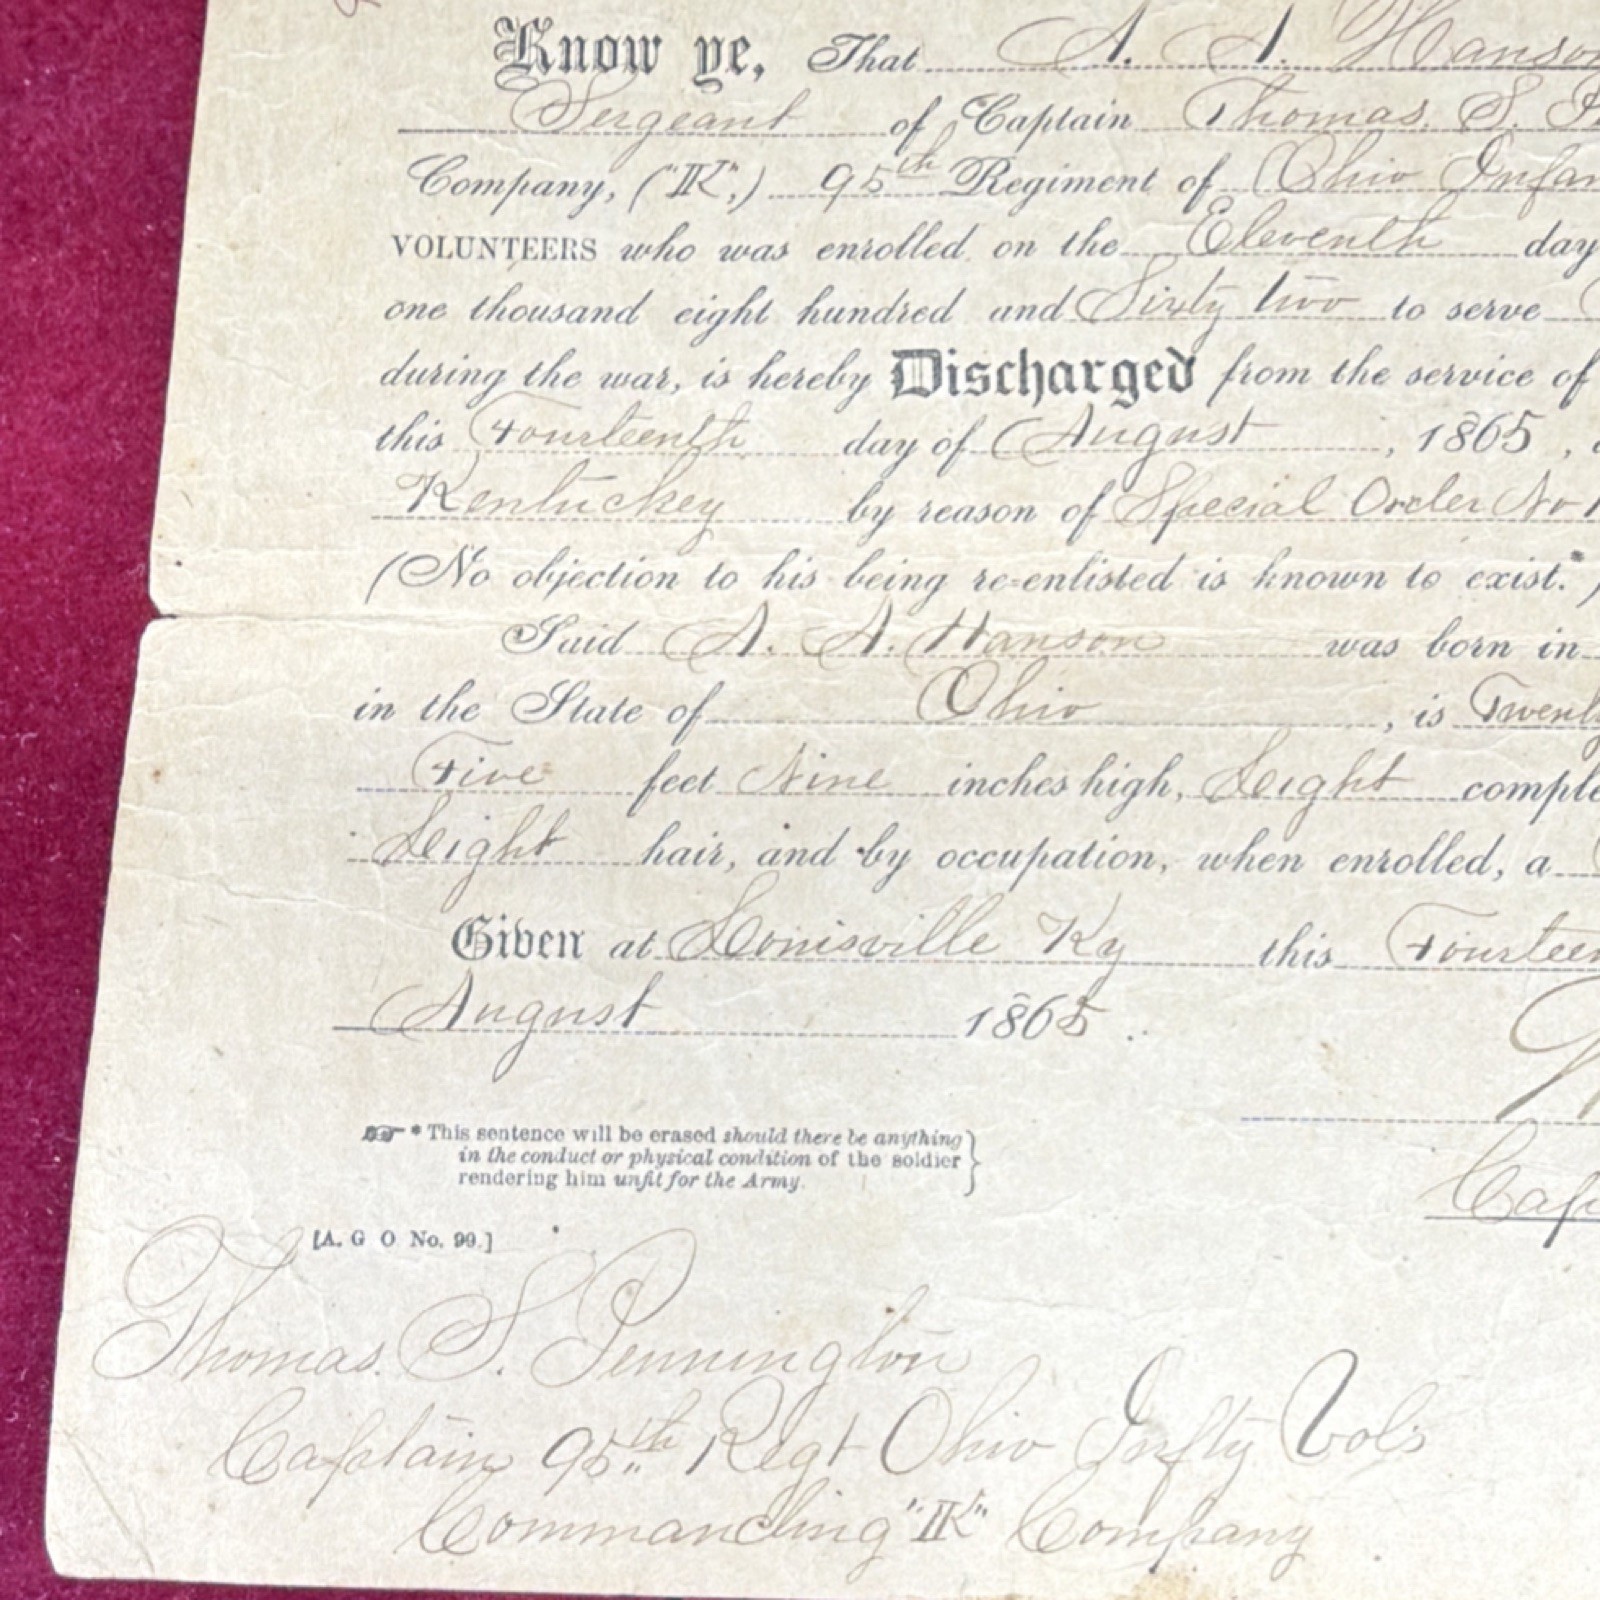 Know ye, That A. A. Hanson
Sergeant of Captain Thomas. S.
Company, ("K",) 95th Regiment of Ohio Infan
VOLUNTEERS who was enrolled on the Eleventh day
one thousand eight hundred and Sixty two to serve
during the war, is hereby Discharged from the service of
this Fourteenth day of August, 1865,
Kentucky by reason of Special Order No
(No objection to his being re-enlisted is known to exist.*)
Said A. A. Hanson was born in
in the State of Ohio, is Twent
Five feet Nine inches high, Light comple
Light hair, and by occupation, when enrolled, a
Given at Louisville Ky this Fourteen
August 1865.
☞ * This sentence will be erased should there be anything
in the conduct or physical condition of the soldier
rendering him unfit for the Army.
[A. G O No. 99.]
Cap
Thomas. S. Pennington
Captain 95th Regt Ohio Infty Vols
Commanding "K" Company